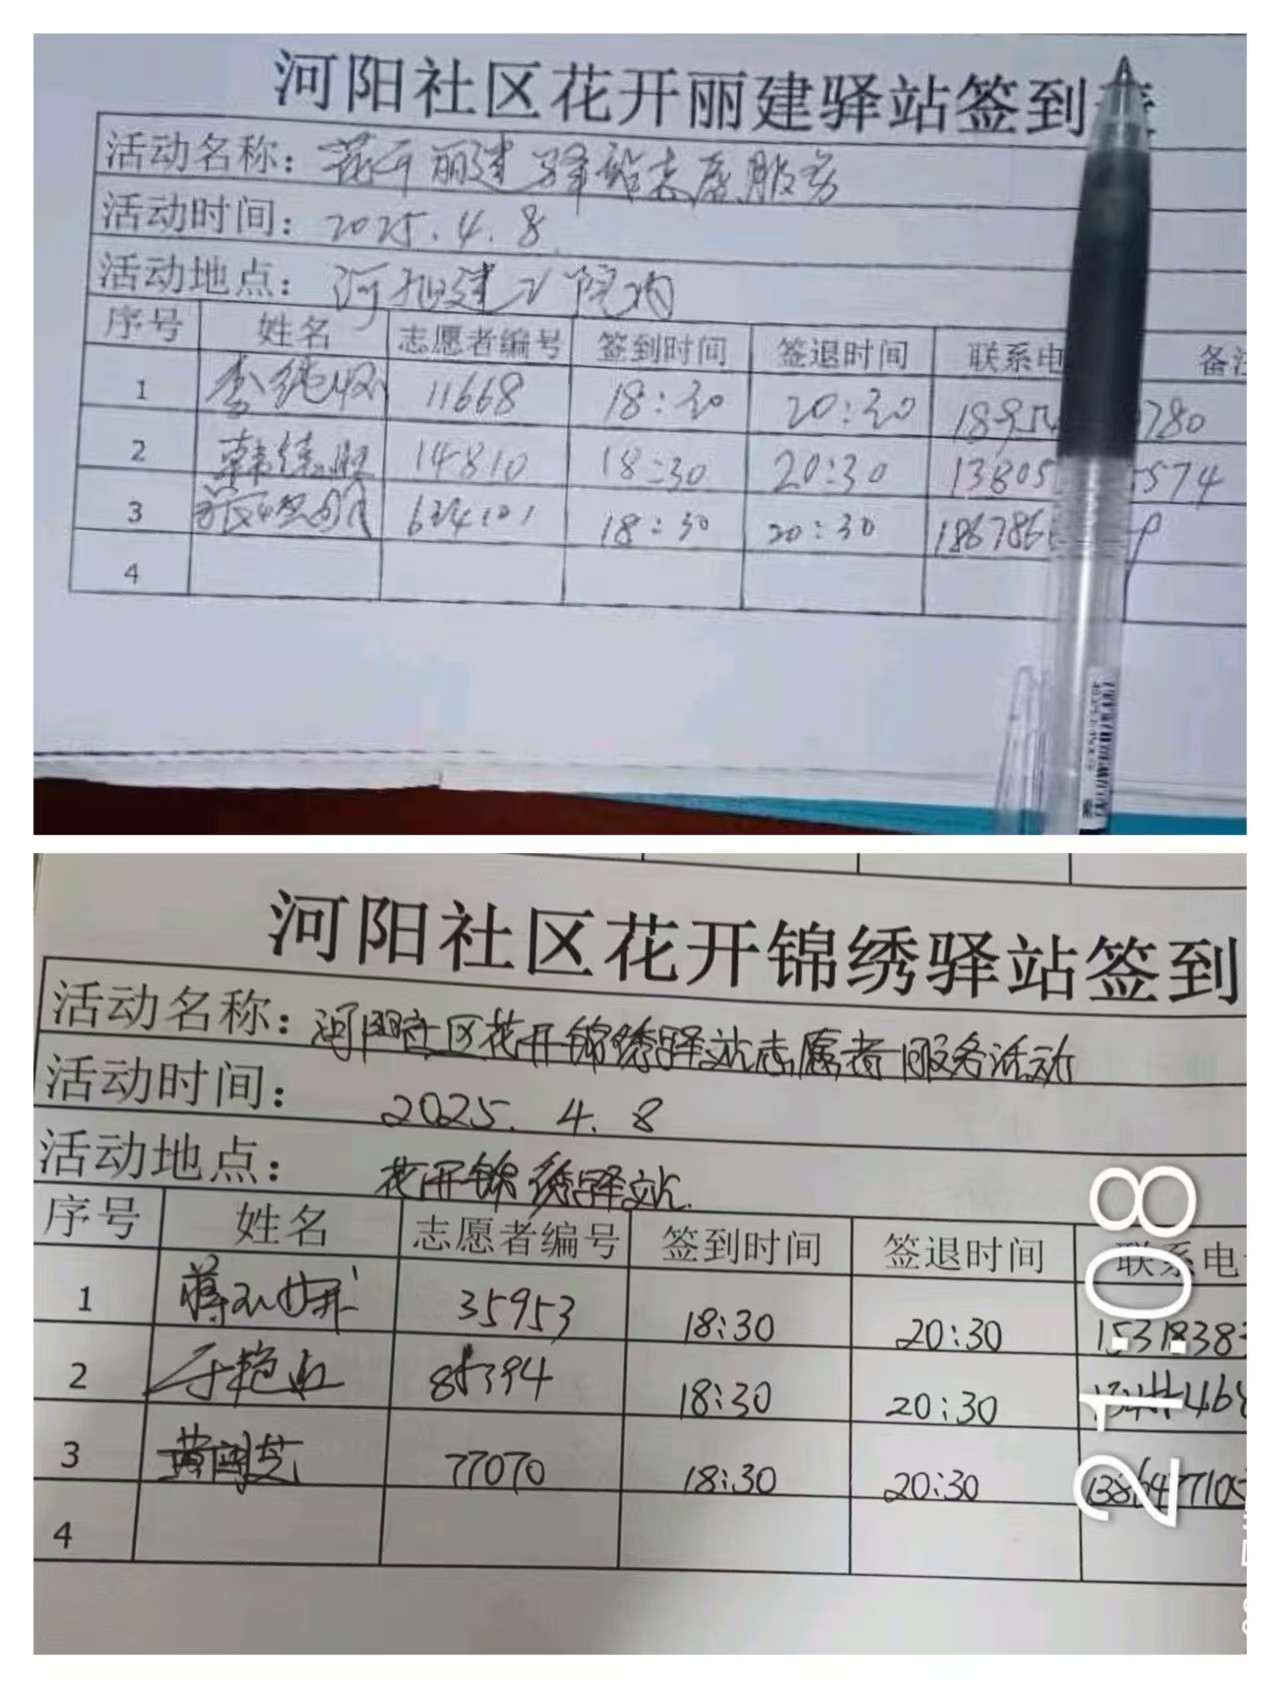 河阳社区花开丽建驿站签到
活动名称：花开丽建驿站志愿服务
活动时间：2025.4.8
活动地点：河阳建工院内
序号 姓名 志愿者编号 签到时间 签退时间 联系电 备注
1 11668 18:30 20:30 780
2 14810 18:30 20:30 13805 574
3 18:30 20:30 186786
4
河阳社区花开锦绣驿站签到
活动名称：河阳社区花开锦绣驿站志愿者服务活动
活动时间：2025.4.8
活动地点：花开锦绣驿站
序号 姓名 志愿者编号 签到时间 签退时间 联系电
1 35953 18:30 20:30 1531838
2 于艳红 85394 18:30 20:30
3 黄阁芝 77070 18:30 20:30 1386477105
4
21:08